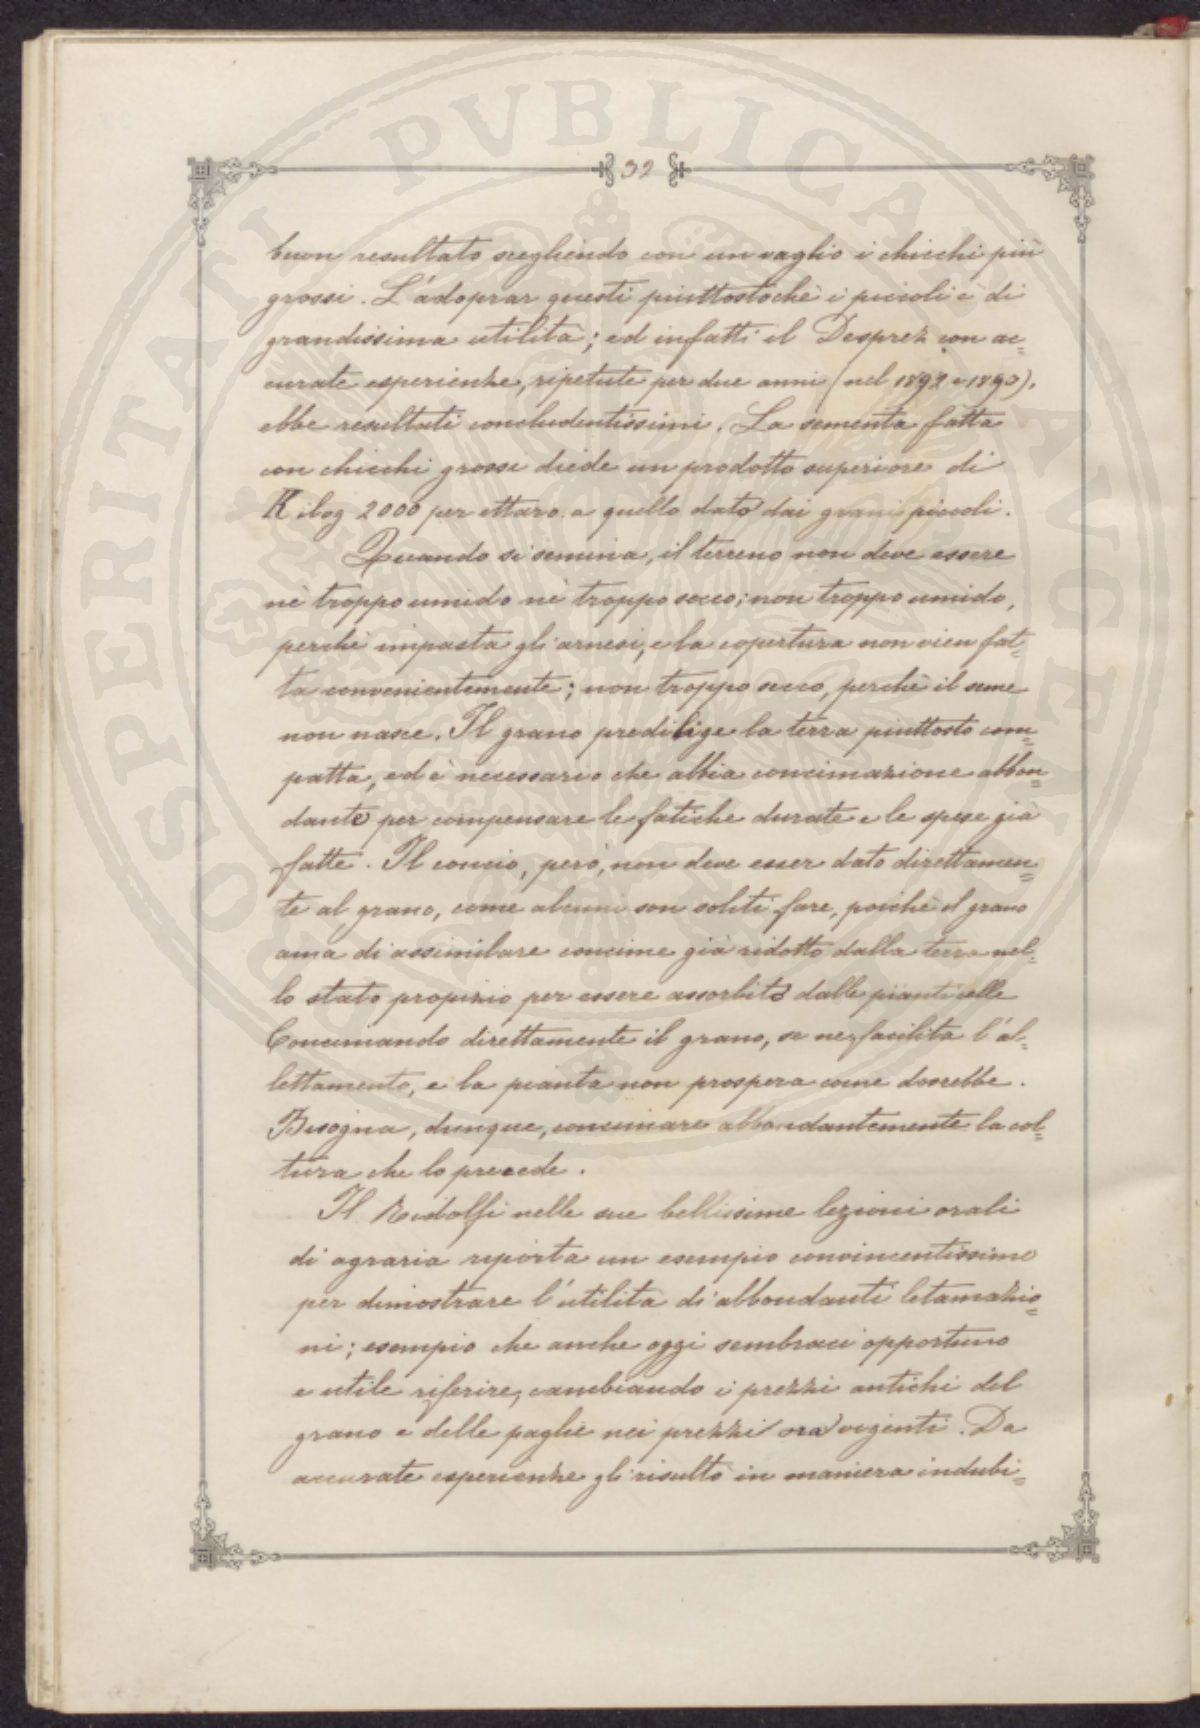 32
buon resultato scegliendo con un vaglio i chicchi più
grossi. L'adoprar questi piuttostochè i piccoli è di
grandissima utilità; ed infatti il Desprez con ac=
curate esperienze, ripetute per due anni (nel 1892 e 1893),
ebbe resultati concludentissimi. La sementa fatta
con chicchi grossi diede un prodotto superiore di
Kilog 2000 per ettaro a quello dato dai grani piccoli.
Quando si semina, il terreno non deve essere
nè troppo umido nè troppo secco; non troppo umido,
perchè impasta gli arnesi, e la copertura non vien fat=
ta convenientemente; non troppo secco, perchè il seme
non nasce. Il grano predilige la terra piuttosto com=
patta, ed è necessario che abbia concimazione abbon=
dante per compensare le fatiche durate e le spese già
fatte. Il concio, però, non deve esser dato direttamen=
te al grano, come alcuni son soliti fare, poichè il grano
ama di assimilare concime già ridotto dalla terra nel=
lo stato propizio per essere assorbito dalle pianticelle
Concimando direttamente il grano, se ne facilita l'al=
lettamento, e la pianta non prospera come dovrebbe.
Bisogna, dunque, concimare abbondantemente la col=
tura che lo precede.
Il Ridolfi nelle sue bellissime lezioni orali
di agraria riporta un esempio convincentissimo
per dimostrare l'utilità di abbondanti letamazio=
ni; esempio che anche oggi sembraci opportuno
e utile riferire, cambiando i prezzi antichi del
grano e delle paglie nei prezzi ora vigenti. Da
accurate esperienze gli risultò in maniera indubi=
SPERITATI PVBLICAE AVGENDAE